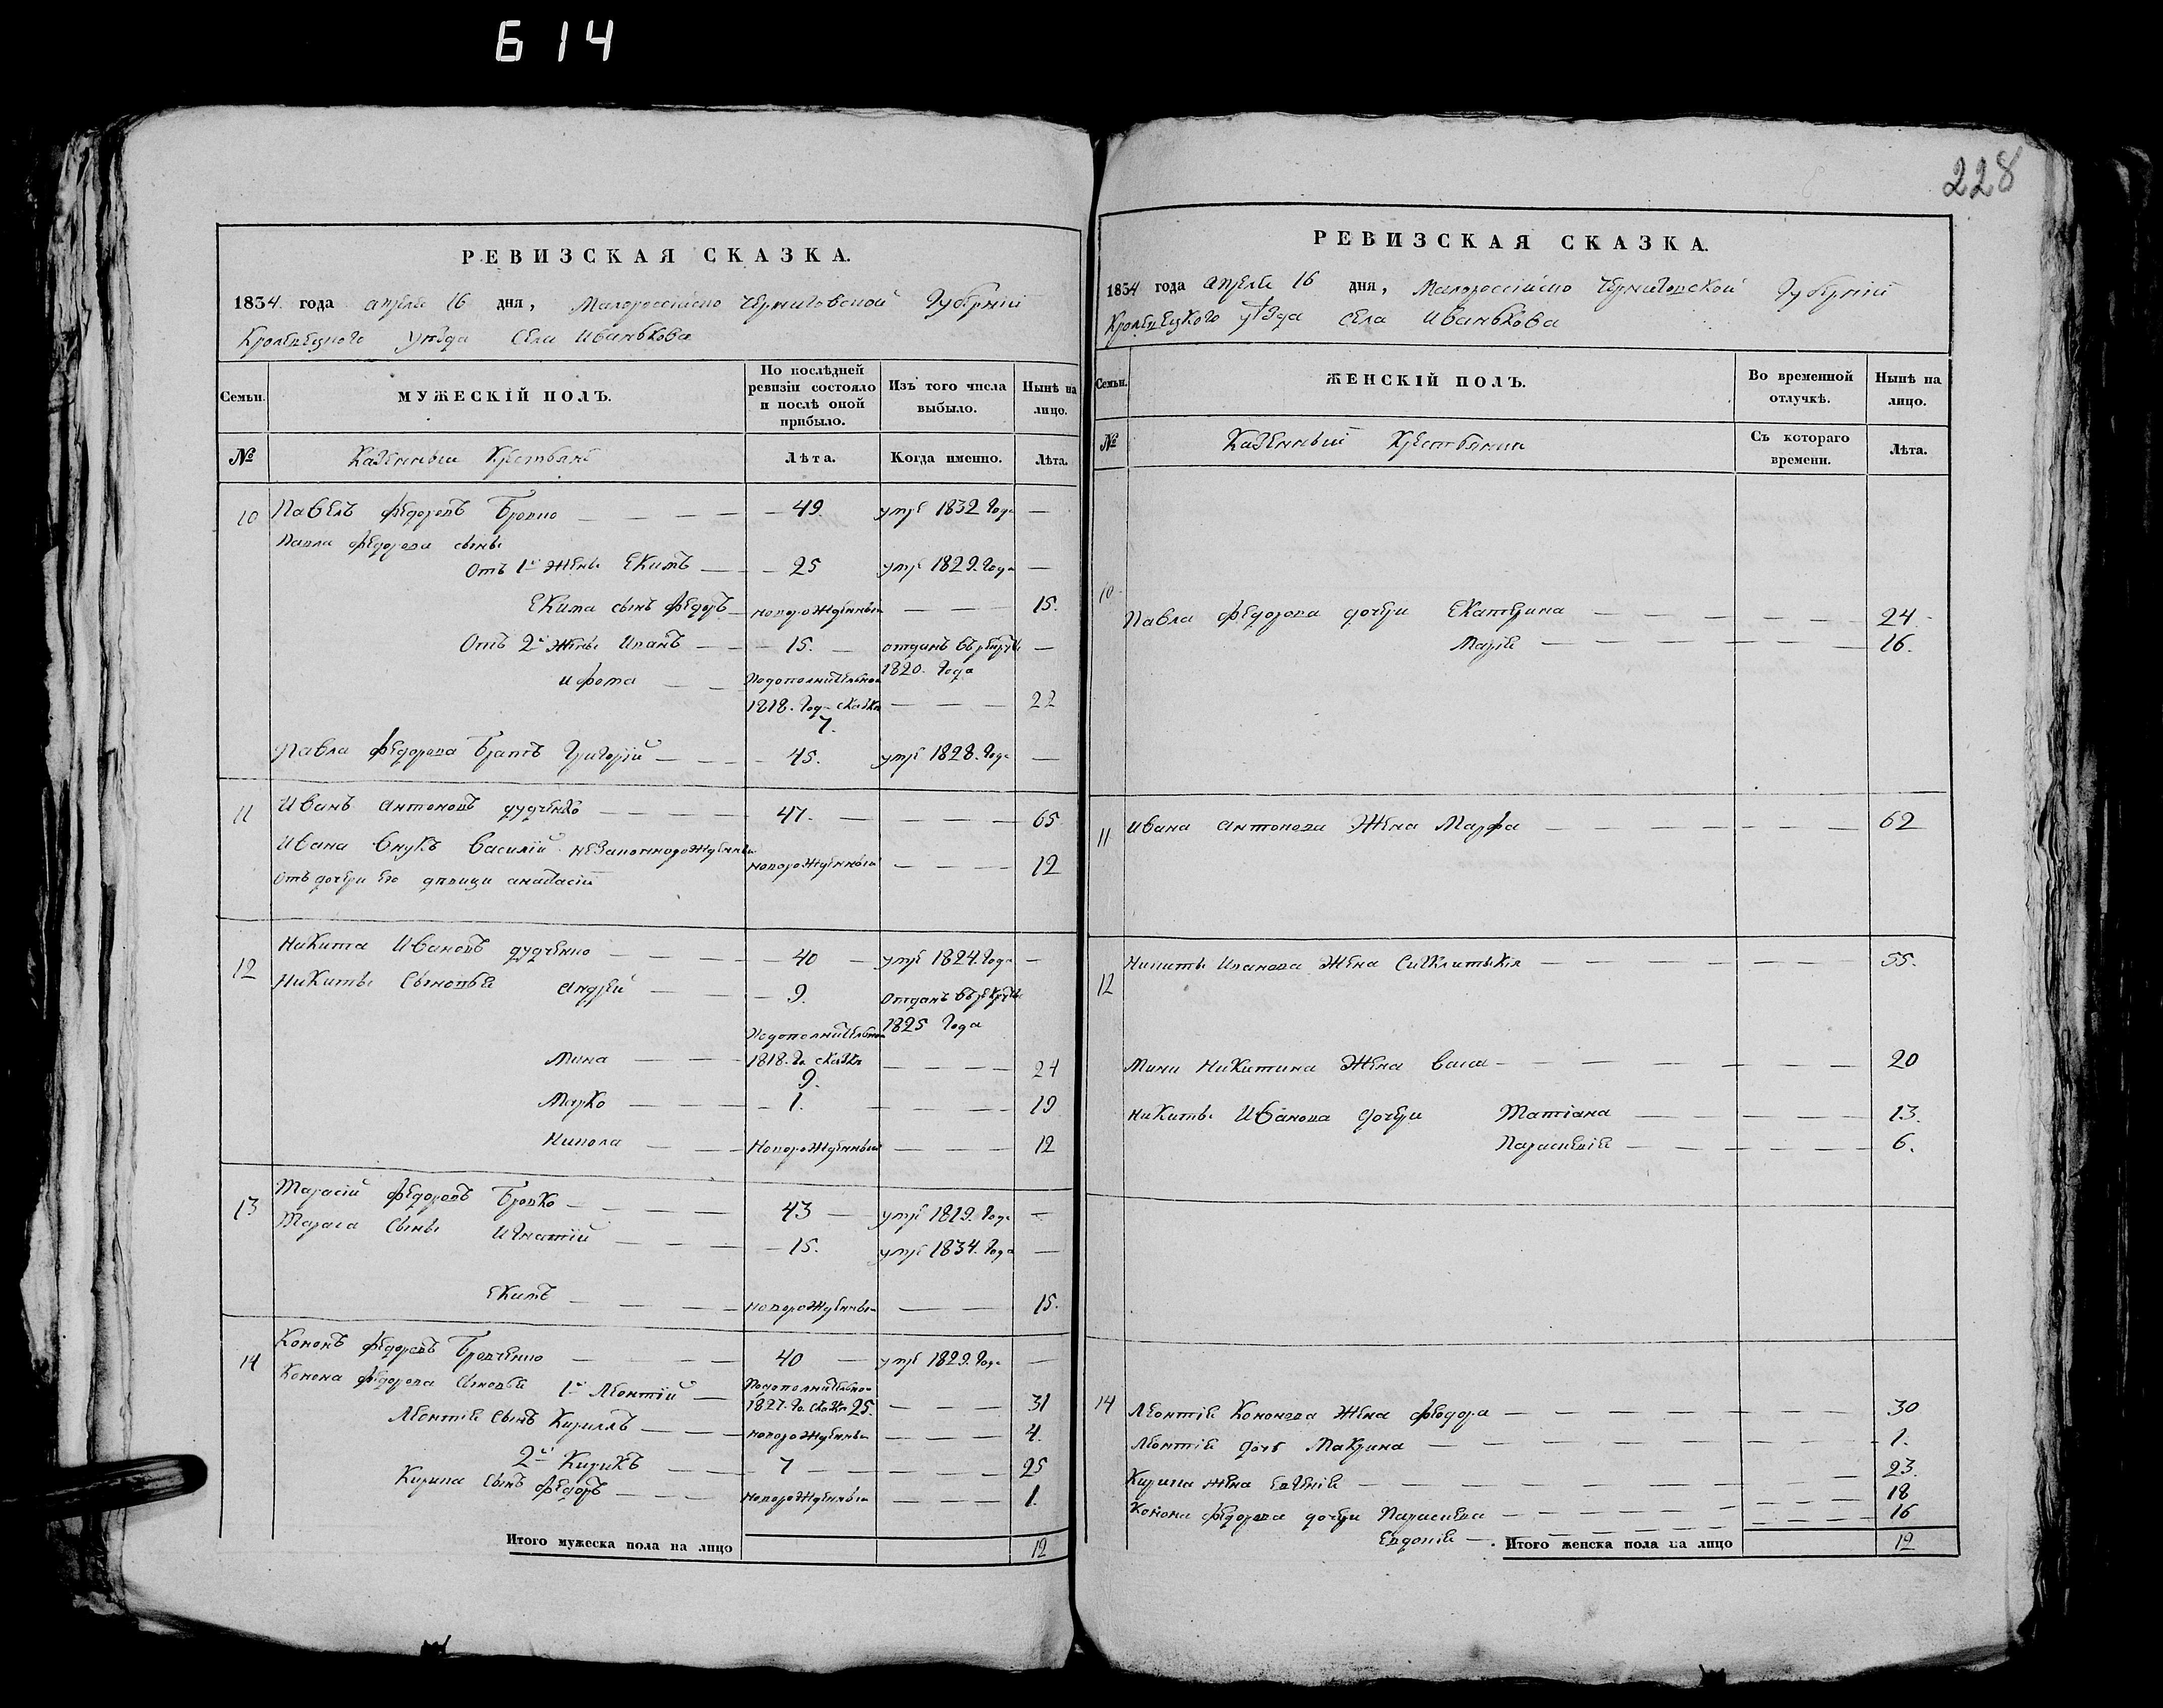 614
228
РЕВИЗСКАЯ СКАЗКА.
1834 года апреля 16 дня, Малороссійско Черниговской Губерніи
Кролевецкого уезда Села Иванькова
Семьи.
МУЖЕСКІЙ ПОЛЪ.
По послѣдней ревизіи состояло и послѣ оной прибыло.
Изъ того числа выбыло.
Нынѣ на лицо.
№
Казенныи Крестьяне
Лѣта.
Когда именно.
Лѣта.
10 Павелъ Федоровъ Бровко — 49. умре 1832 Года —
Павла Федорова сыны
Отъ 1й жены Екимъ — 25 умре 1829. Года —
Екима сынъ Федоръ — новорожденный — 15.
Отъ 2й жены Иванъ — 15. — отданъ въ рекруты —
1820. Года
и Фома — Подополнительной
1818. Года сказки — 22
7.
Павла Федорова братъ Григорій — 45. умре 1828. Года —
11 Иванъ Антоновъ Дудченко — 47. — 65
Ивана внукъ Василій незаконнорожденный новорожденный — 12
Отъ дочери его девици Анастасіи
12 Никита Ивановъ Дудченко — 40 — умре 1824. Года —
Никиты Сыновья Андрей — 9. Отданъ въ рекруты
1825 Года
Подополнительной
Мина — 1818. Го. сказки — 24
9.
Марко — 1. — 19
Никола — Новорожденный — 12
13 Тарасій Федоровъ Бровко — 43 — умре 1819. Года —
Тараса Сыны Игнатій — 15. умре 1834. Года —
Екимъ — новорожденный — 15.
14 Кононъ Федоровъ Бровченко — 40 — умре 1829. Года —
Конона Федорова Сыновья 1й Леонтій — Подополнительной
1827. Го. сказки 25. — 31
Леонтія Сынъ Кириллъ — новорожденный — 4.
2й Кирикъ — 7 — 25
Кирика Сынъ Федоръ — новорожденный — 1.
Итого мужеска пола на лицо 12
РЕВИЗСКАЯ СКАЗКА.
1834 года Апреля 16 дня, Малороссійско Черниговской Губерніи
Кролевецкого уезда Села Иванькова
Семьи.
ЖЕНСКІЙ ПОЛЪ.
Во временной отлучкѣ.
Нынѣ на лицо.
№
Казенныи Крестьянки
Съ котораго времени.
Лѣта.
10 Павла Федорова дочери Екатерина — 24
Марія — 16.
11 Ивана Антонова Жена Марфа — 62
12 Никиты Иванова Жена — 55.
Мини Никитина Жена Васса — 20
Никиты Иванова дочери Татіана — 13.
Параскевія — 6.
14 Леонтія Кононова Жена Феодора — 30
Леонтія дочь Макрина — 1.
Кирика жена Евгенія — 23.
Конона Федорова дочери Параскева — 18
Евдокія — 16
Итого женска пола на лицо 12